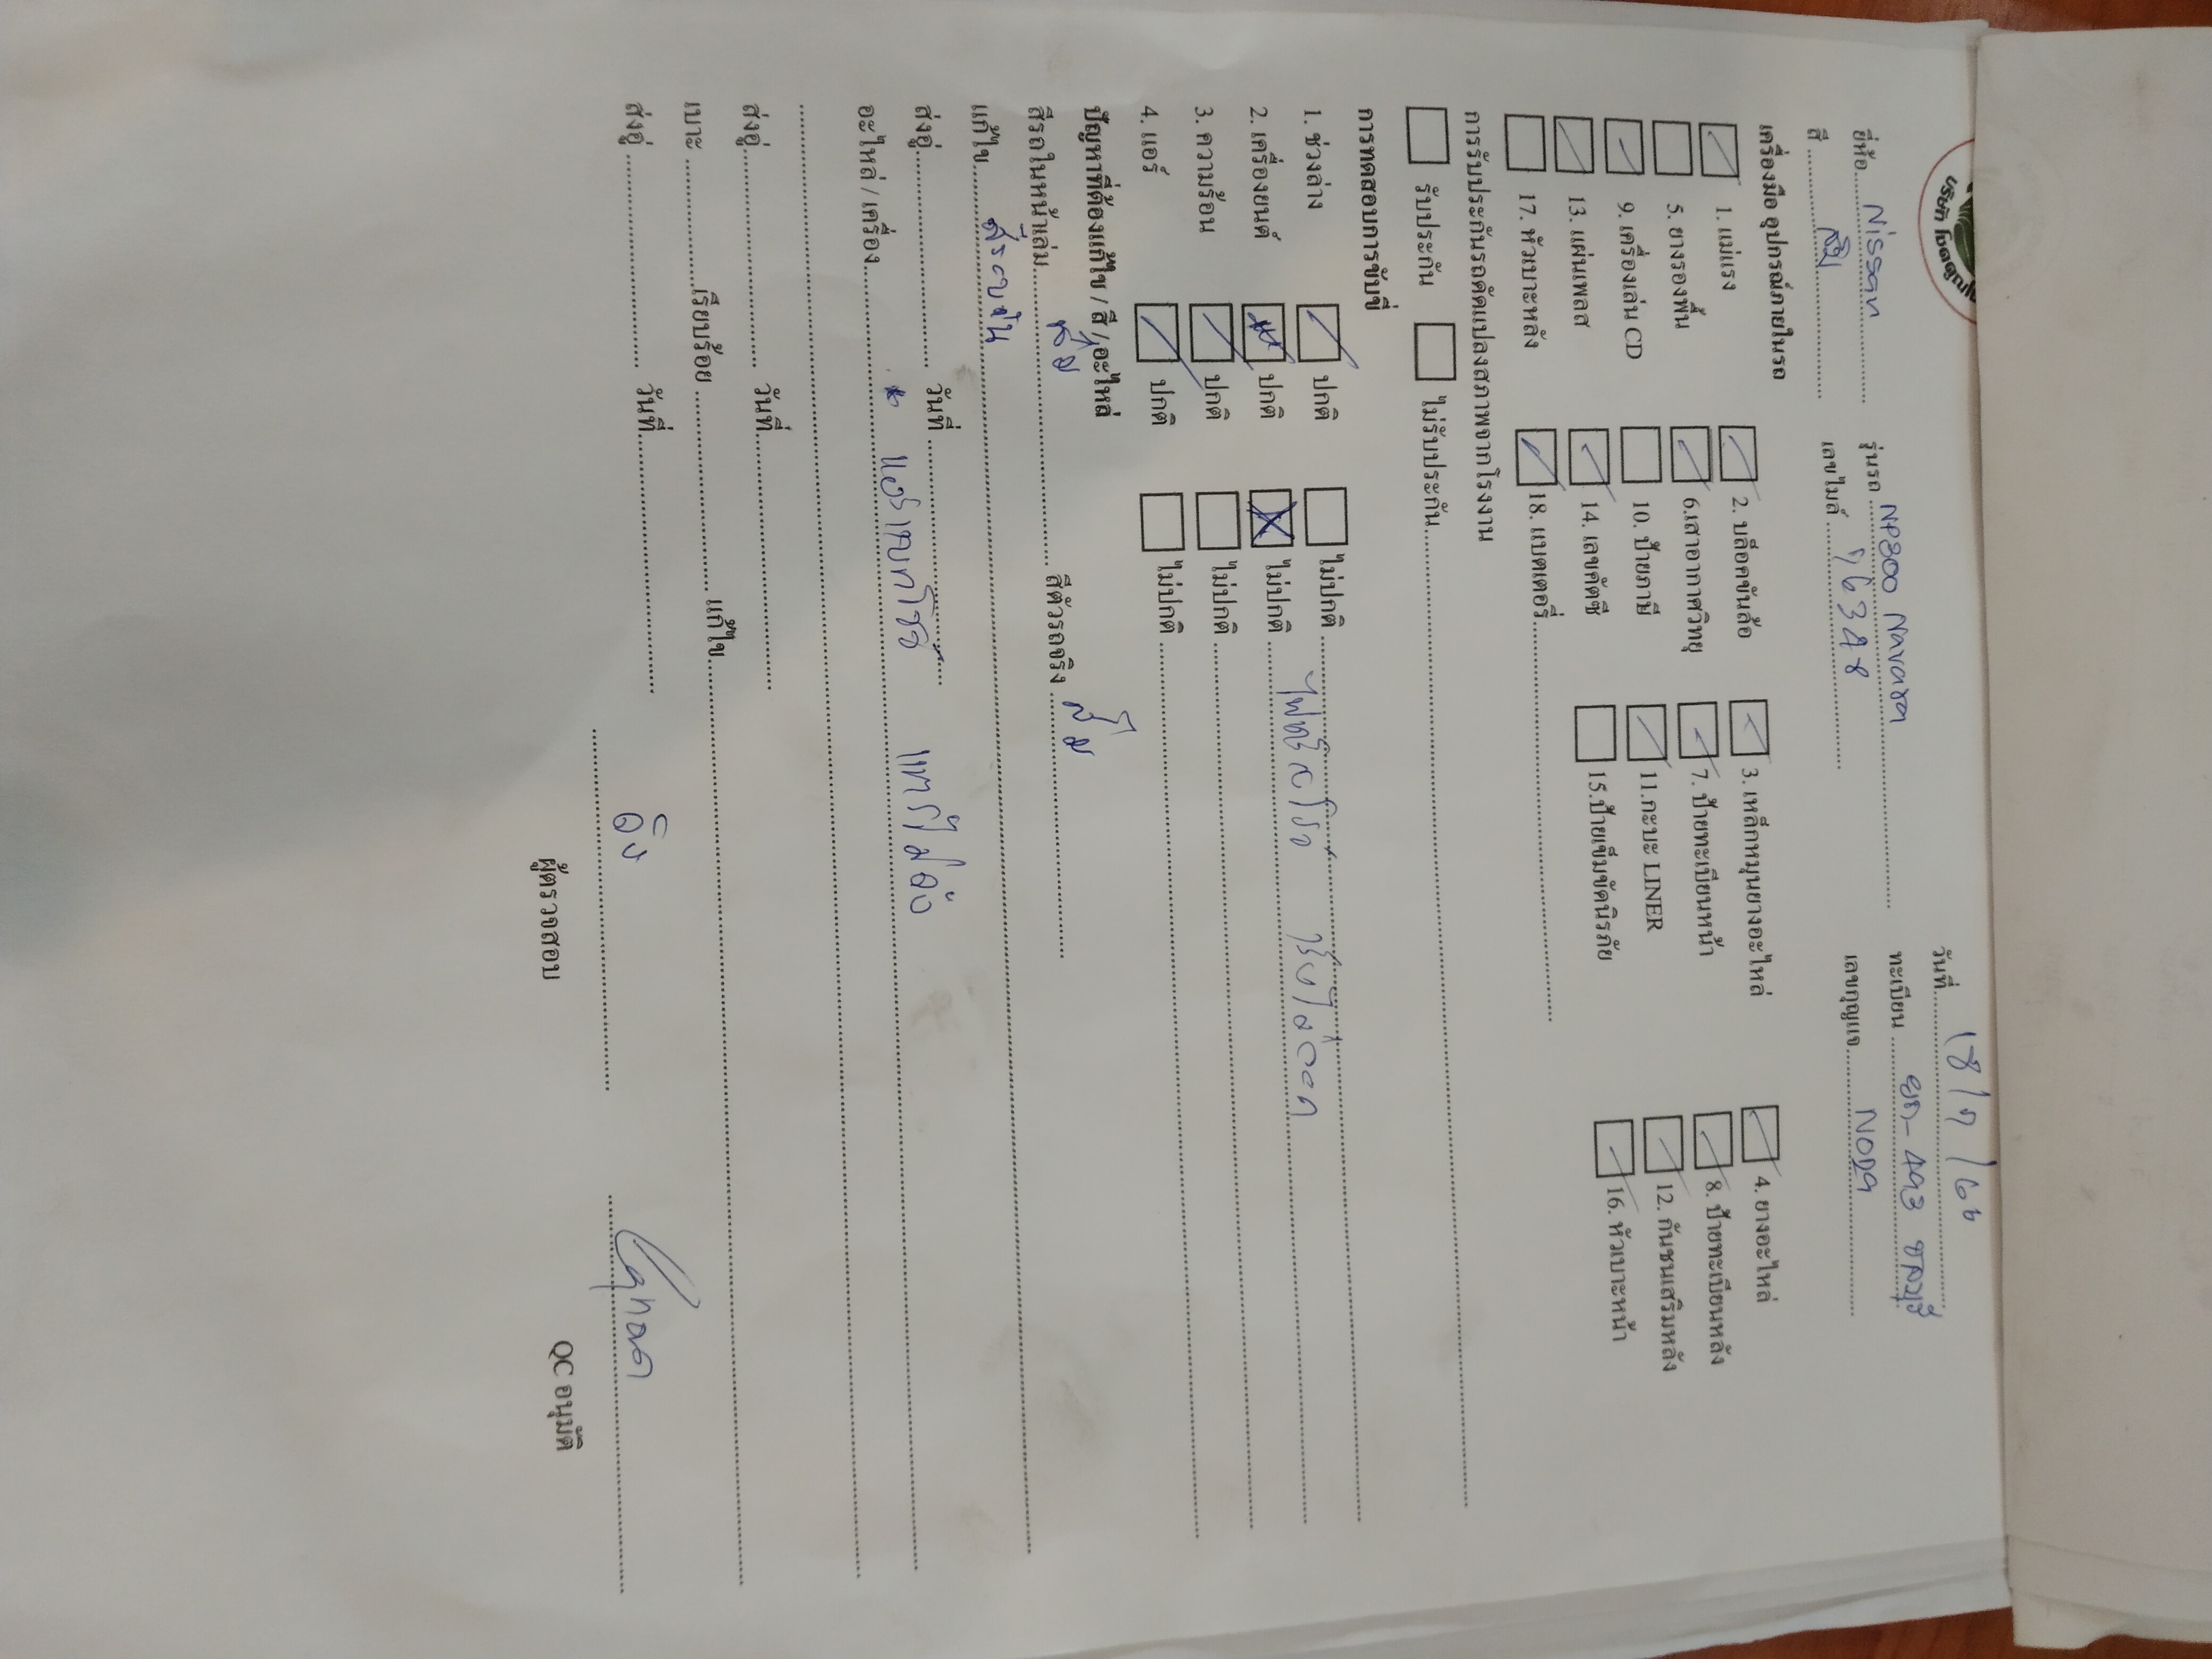 บริษัท โชคคูณ
วันที่ 18/7/66
ยี่ห้อ Nissan รุ่นรถ NP300 Navara ทะเบียน ยก-493 ชลบุรี
สี ส้ม เลขไมล์ 96348 เลขกุญแจ
เครื่องมือ อุปกรณ์ภายในรถ
1. แม่แรง 2. บล็อคขันล้อ 3. เหล็กหมุนยางอะไหล่ 4. ยางอะไหล่
5. ยางรองพื้น 6.เสาอากาศวิทยุ 7. ป้ายทะเบียนหน้า 8. ป้ายทะเบียนหลัง
9. เครื่องเล่น CD 10. ป้ายภาษี 11.กะบะ LINER 12. กันชนเสริมหลัง
13. แผ่นเพลส 14. เลขคัตซี 15.ป้ายเข็มขัดนิรภัย 16. หัวเบาะหน้า
17. หัวเบาะหลัง 18. แบคเตอรี่
การรับประกันรถดัดแปลงสภาพจากโรงงาน
รับประกัน ไม่รับประกัน
การทดสอบการขับขี่
1. ช่วงล่าง ปกติ ไม่ปกติ
2. เครื่องยนต์ ปกติ ไม่ปกติ ไฟหรี่
3. ความร้อน ปกติ ไม่ปกติ
4. แอร์ ปกติ ไม่ปกติ
ปัญหาที่ต้องแก้ไข / สี / อะไหล่
สีรถในหน้าเล่ม สีตัวรถจริง ส้ม
แก้ไข
ส่งอู่ วันที่
อะไหล่ / เครื่อง
ส่งอู่ วันที่
เบาะ เรียบร้อย แก้ไข
ส่งอู่ วันที่
ผู้ตรวจสอบ QC อนุมัติ